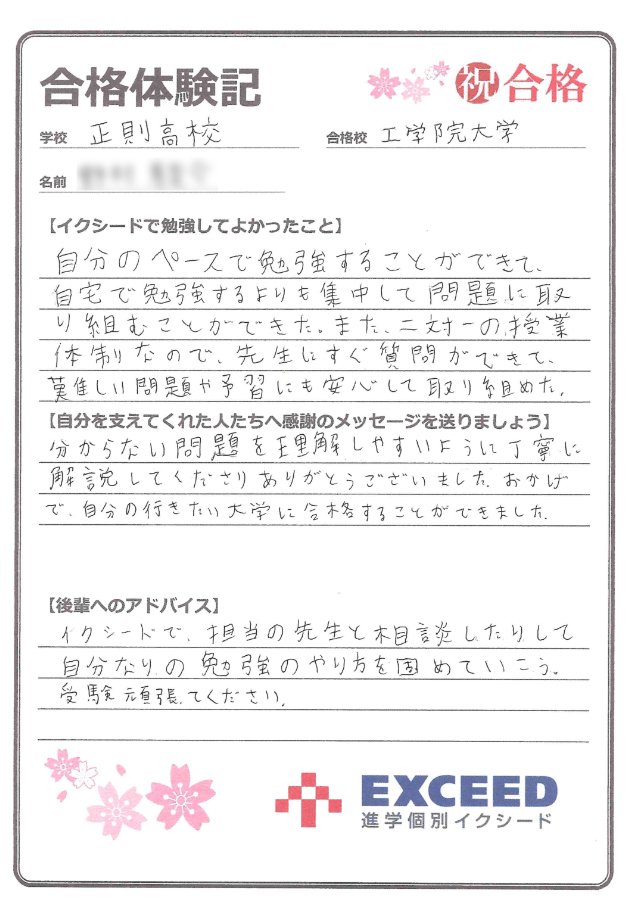 合格体験記
祝 合格
学校 正則高校
合格校 工学院大学
名前
【イクシードで勉強してよかったこと】
自分のペースで勉強することができて、
自宅で勉強するよりも集中して問題に取
り組むことができた。また、二対一の授業
体制なので、先生にすぐ質問ができて、
難しい問題や予習にも安心して取り組めた。
【自分を支えてくれた人たちへ感謝のメッセージを送りましょう】
分からない問題を理解しやすいように丁寧に
解説してくださりありがとうございました。おかげ
で、自分の行きたい大学に合格することができました。
【後輩へのアドバイス】
イクシードで、担当の先生と相談したりして
自分なりの勉強のやり方を固めていこう。
受験頑張ってください。
EXCEED
進学個別イクシード